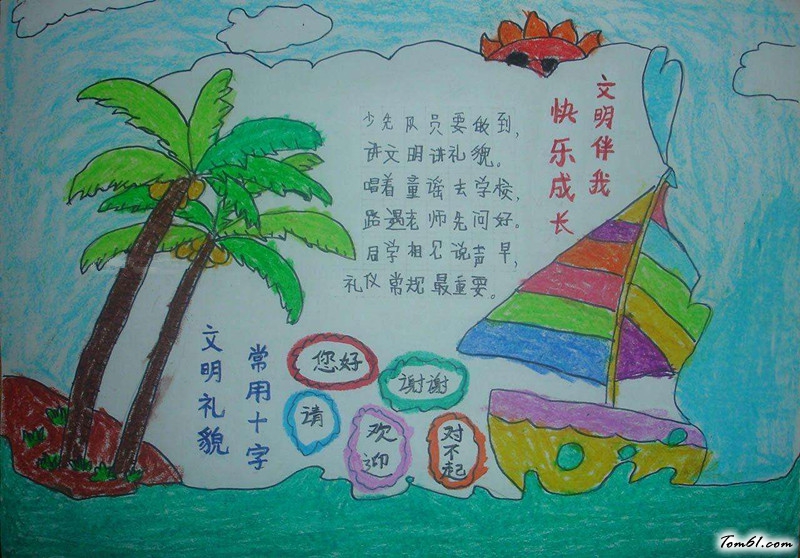 文明伴我
快乐成长
少先队员要做到，
讲文明讲礼貌。
唱着童谣去学校，
路遇老师先问好。
同学相见说声早，
礼仪常规最重要。
文明礼貌
常用十字
您好
谢谢
请
欢迎
对不起
Tom61.com